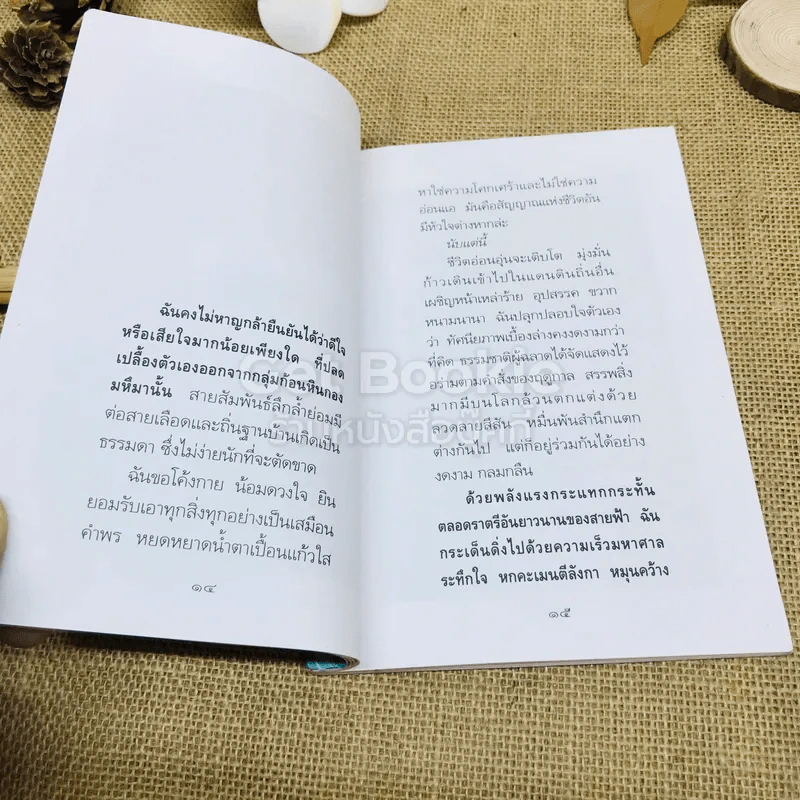 ฉันคงไม่หาญกล้ายืนยันได้ว่าดีใจ
หรือเสียใจมากน้อยเพียงใด ที่ปลด
เปลื้องตัวเองออกจากกลุ่มก้อนหินกอง
มหึมานั้น สายสัมพันธ์ลึกล้ำย่อมมี
ต่อสายเลือดและถิ่นฐานบ้านเกิดเป็น
ธรรมดา ซึ่งไม่ง่ายนักที่จะตัดขาด
ฉันขอโค้งกาย น้อมดวงใจ ยิน
ยอมรับเอาทุกสิ่งทุกอย่างเป็นเสมือน
คำพร หยดหยาดน้ำตาเปื้อนแก้วใส
๑๔
หาใช่ความโศกเศร้าและไม่ใช่ความ
อ่อนแอ มันคือสัญญาณแห่งชีวิตอัน
มีหัวใจต่างหากล่ะ
นับแต่นี้
ชีวิตอ่อนอุ่นจะเติบโต มุ่งมั่น
ก้าวเดินเข้าไปในแดนดินถิ่นอื่น
เผชิญหน้าเหล่าร้าย อุปสรรค ขวาก
หนามนานา ฉันปลุกปลอบใจตัวเอง
ว่า ทัศนียภาพเบื้องล่างคงงดงามกว่า
ที่คิด ธรรมชาติผู้ฉลาดได้จัดแสดงไว้
อร่ามตามคำสั่งของฤดูกาล สรรพสิ่ง
มากมีบนโลกล้วนตกแต่งด้วย
ลวดลายสีสัน หมื่นพันสำนึกแตก
ต่างกันไป แต่ก็อยู่ร่วมกันได้อย่าง
งดงาม กลมกลืน
ด้วยพลังแรงกระแทกกระทั้น
ตลอดราตรีอันยาวนานของสายฟ้า ฉัน
กระเด็นดิ่งไปด้วยความเร็วมหาศาล
ระทึกใจ หกคะเมนตีลังกา หมุนคว้าง
๑๕
Get Bookie
ร้านหนังสือบุ๊คกี้